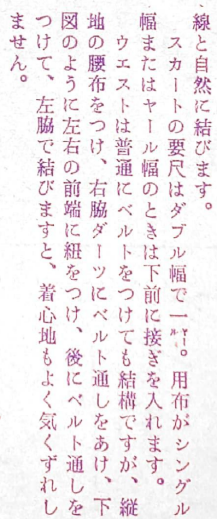 線と自然に結びます。
スカートの要尺はダブル幅で一ヤール。用布がシングル
幅またはヤール幅のときは下前に接ぎを入れます。
ウエストは普通にベルトをつけても結構ですが、縦
地の腰布をつけ、右脇ダーツにベルト通しをあけ、下
図のように左右の前端に紐をつけ、後にベルト通しを
つけて、左脇で結びますと、着心地もよく気くずれし
ません。